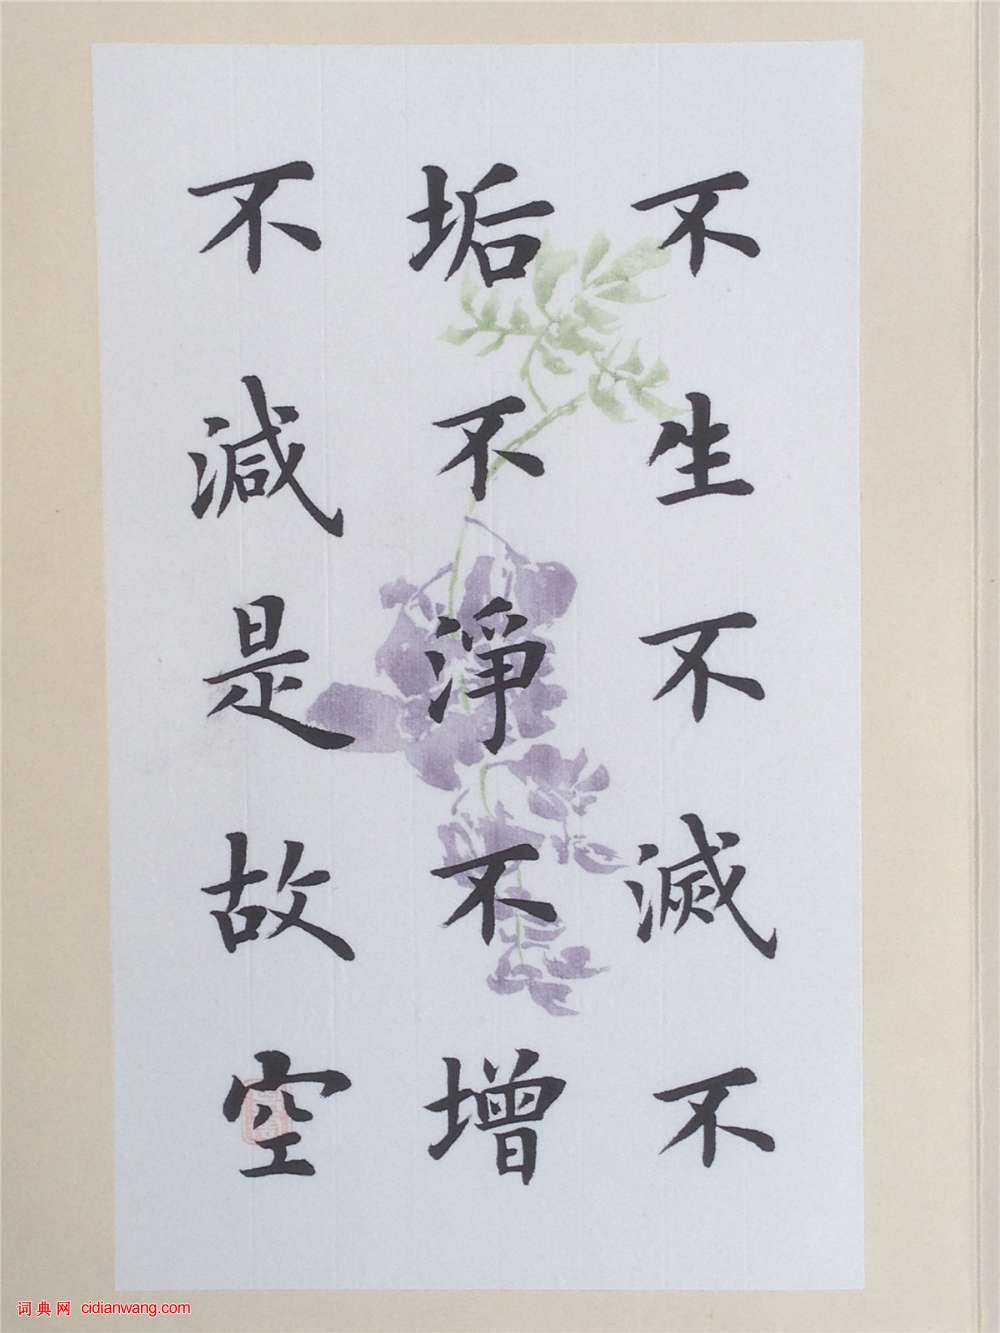 不生不滅不
垢不淨不增
不減是故空
词典网 cidianwang.com